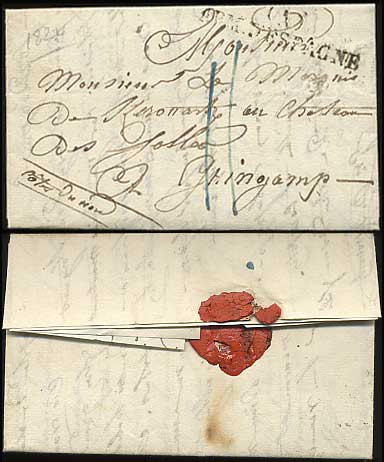 182
ESPAGNE
Monsieur
Monsieur Le Marquis
De au Chateau
Des Salles
A Guingamp
Côtes du nord